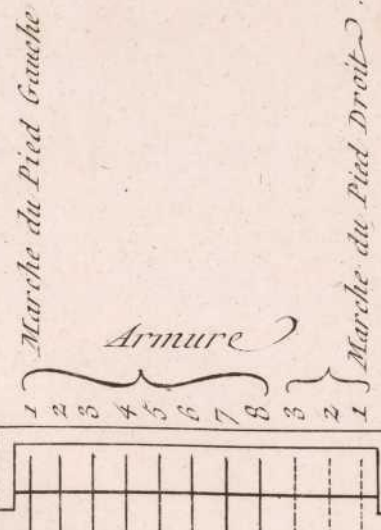 Marche du Pied Gauche
Armure
Marche du Pied Droit.
1 2 3 4 5 6 7 8 3 2 1